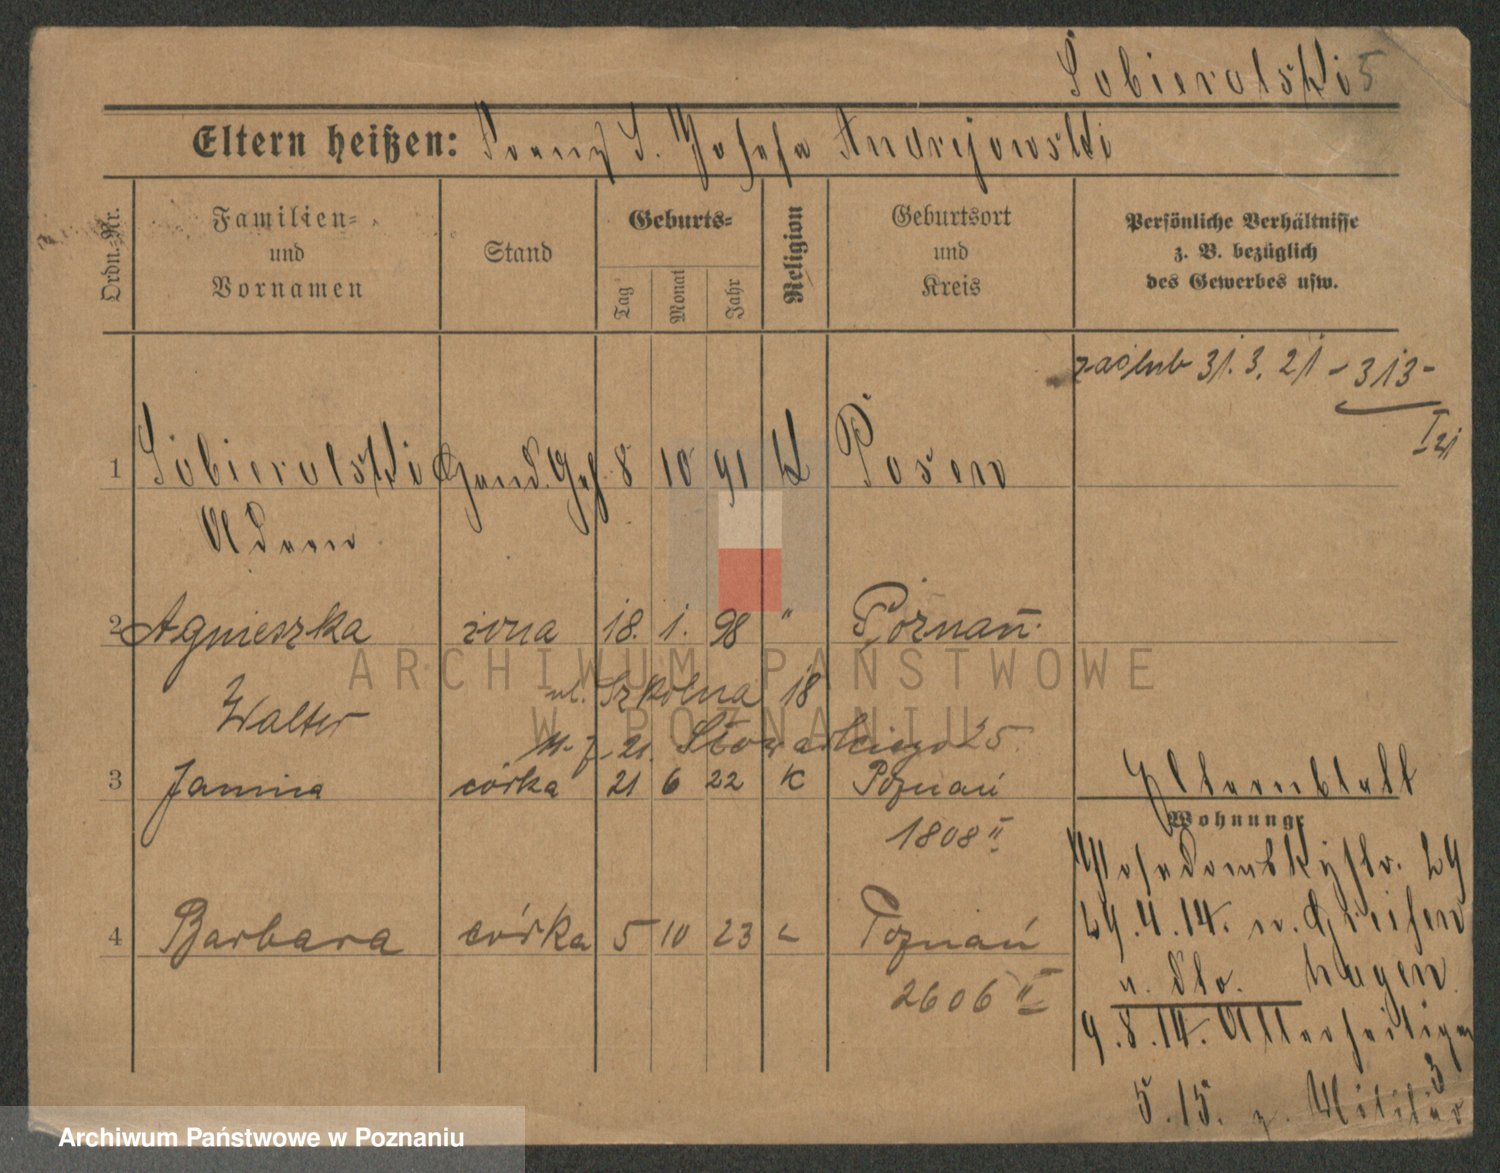 Sobieralski 5
Eltern heißen: Franz S. Josefa Andrejewski
Ordn.-Nr.
Familien-
und
Vornamen
Stand
Geburts-
Tag
Monat
Jahr
Religion
Geburtsort
und
Kreis
Persönliche Verhältnisse
z. B. bezüglich
des Gewerbes usw.
zaślub 31. 3. 21 - 313 -
I 21
1 Sobieralski Hand. Geh 8 10 91 K Posen
Adam
2 Agnieszka żona 18. 1. 98 " Poznań.
ARCHIWUM PAŃSTWOWE
W POZNANIU
Walter ul. Szkolna 18
Słowackiego 25
3 Janina córka 21 6 22 K Poznań
1808 II
Elternblatt
Wohnung:
29
4 Barbara córka 5 10 23 Poznań
2606 II
29.4.14. n. Greifen
hagen
9.8.14. Allerheiligen
3
5.15. z. Militär
Archiwum Państwowe w Poznaniu